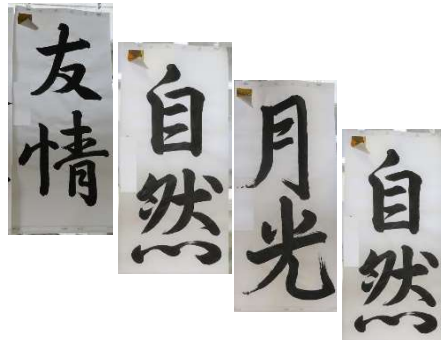 友情
自然
月光
自然